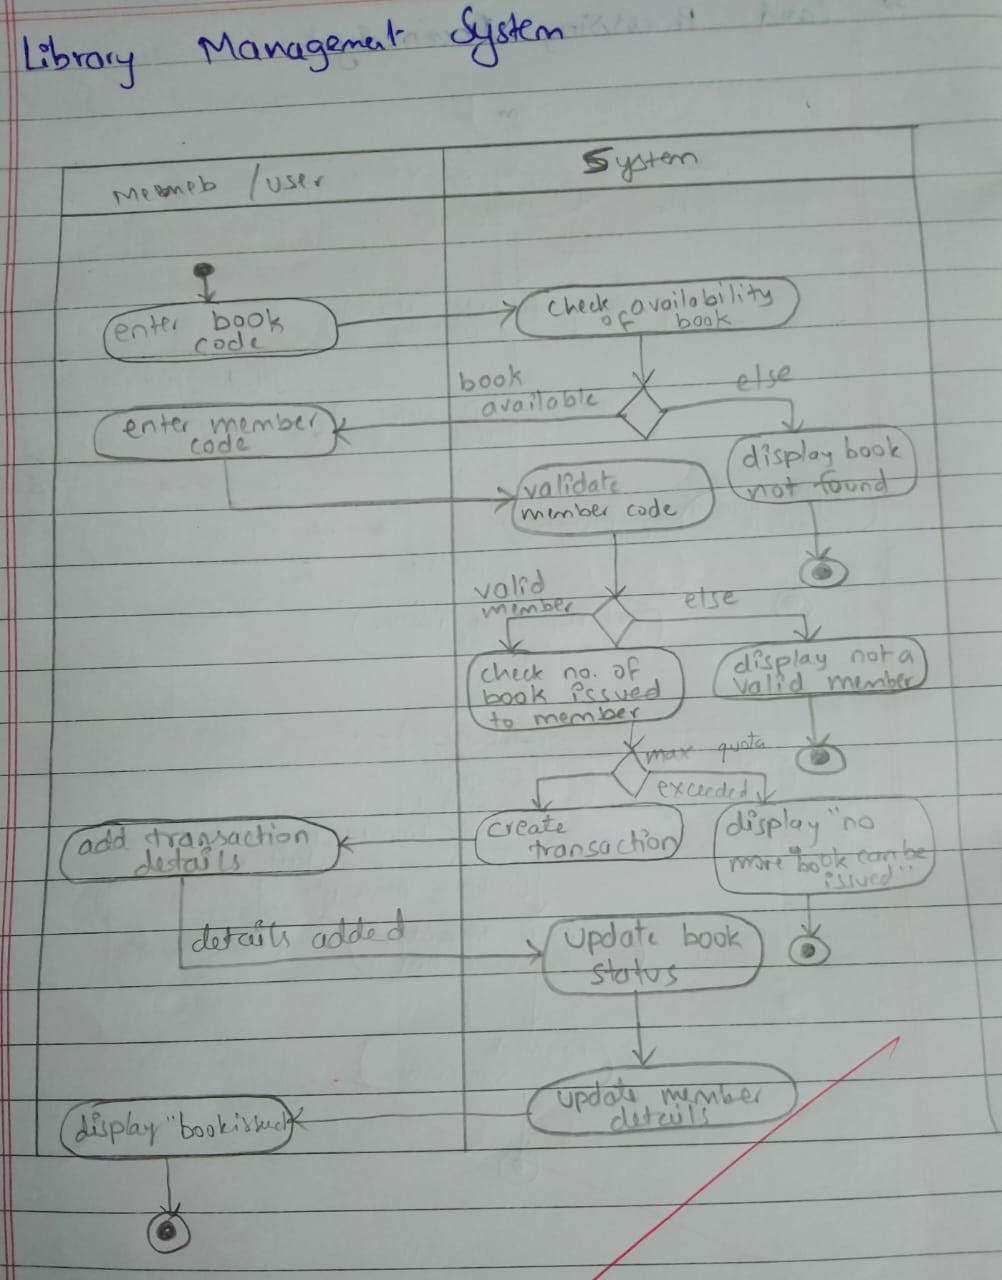 Library Management System
Memneb /user
System
enter book
code
check availability
of book
book
available
else
enter member
code
display book
not found
validate
member code
valid
member
else
check no. of
book issued
to member
display not a
valid member
max quota
exceeded
create
transaction
display "no
more book can be
issued"
add transaction
details
details added
update book
status
update member
details
display "book issued